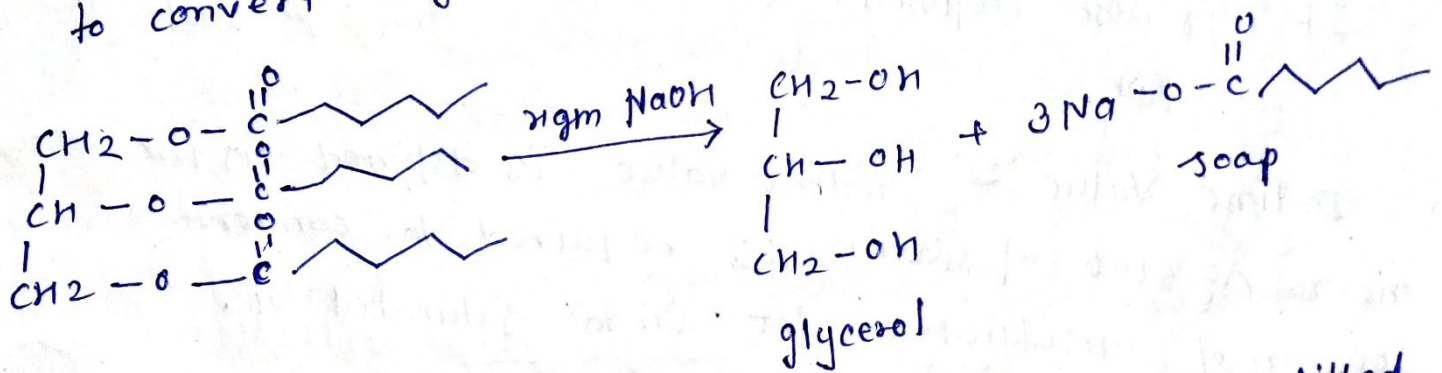 to conver
O
CH2-O-C
O
CH-O-C
O
CH2-O-C
xgm NaOH
CH2-OH
CH-OH
CH2-OH
glycerol
+ 3Na-O-C
O
soap